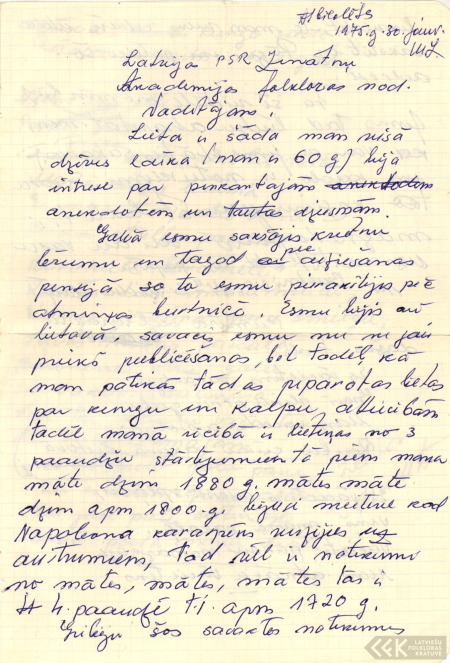 Atbildēts
1975.g. 30. janv.
Latvija PSR Zinātņu
Akadēmijas folkloras nod.
Vadītājam.
Lieta ir šāda man visā
dzīves laikā (man ir 60 g) bija
intrese par pirkantajām anekdotem
anekdotēm un tautas dziesmām.
Galvā esmu sakrājis krietnu
lērumu un tagod pie aiziešanas
pensijā so to esmu pierakstijis pēc
atmiņas burtnīcā. Esmu bijis arī
lietovā, savacis esmu nu ne jau
priekš publicēšanas, bet tadēļ kā
man patikās tādas piparotas lietas
par kungu un kalpu attiecībām
tadēļ manā rīcībā ir lietiņas no 3
paaudžu stāstijumiem tā piem mana
māte dzim 1880 g. mātes māte
dzim apm 1800.g. bijusi meitene kad
Napoleona karaspēks virzijies uz
austrumiem, tad vēl ir notikumi
no mātes, mātes, mātes tas ir
4. paaudzē t.i. apm 1720 g.
Gribēju šos savaktos notikumus
LATVIEŠU
FOLKLORAS
KRĀTUVE